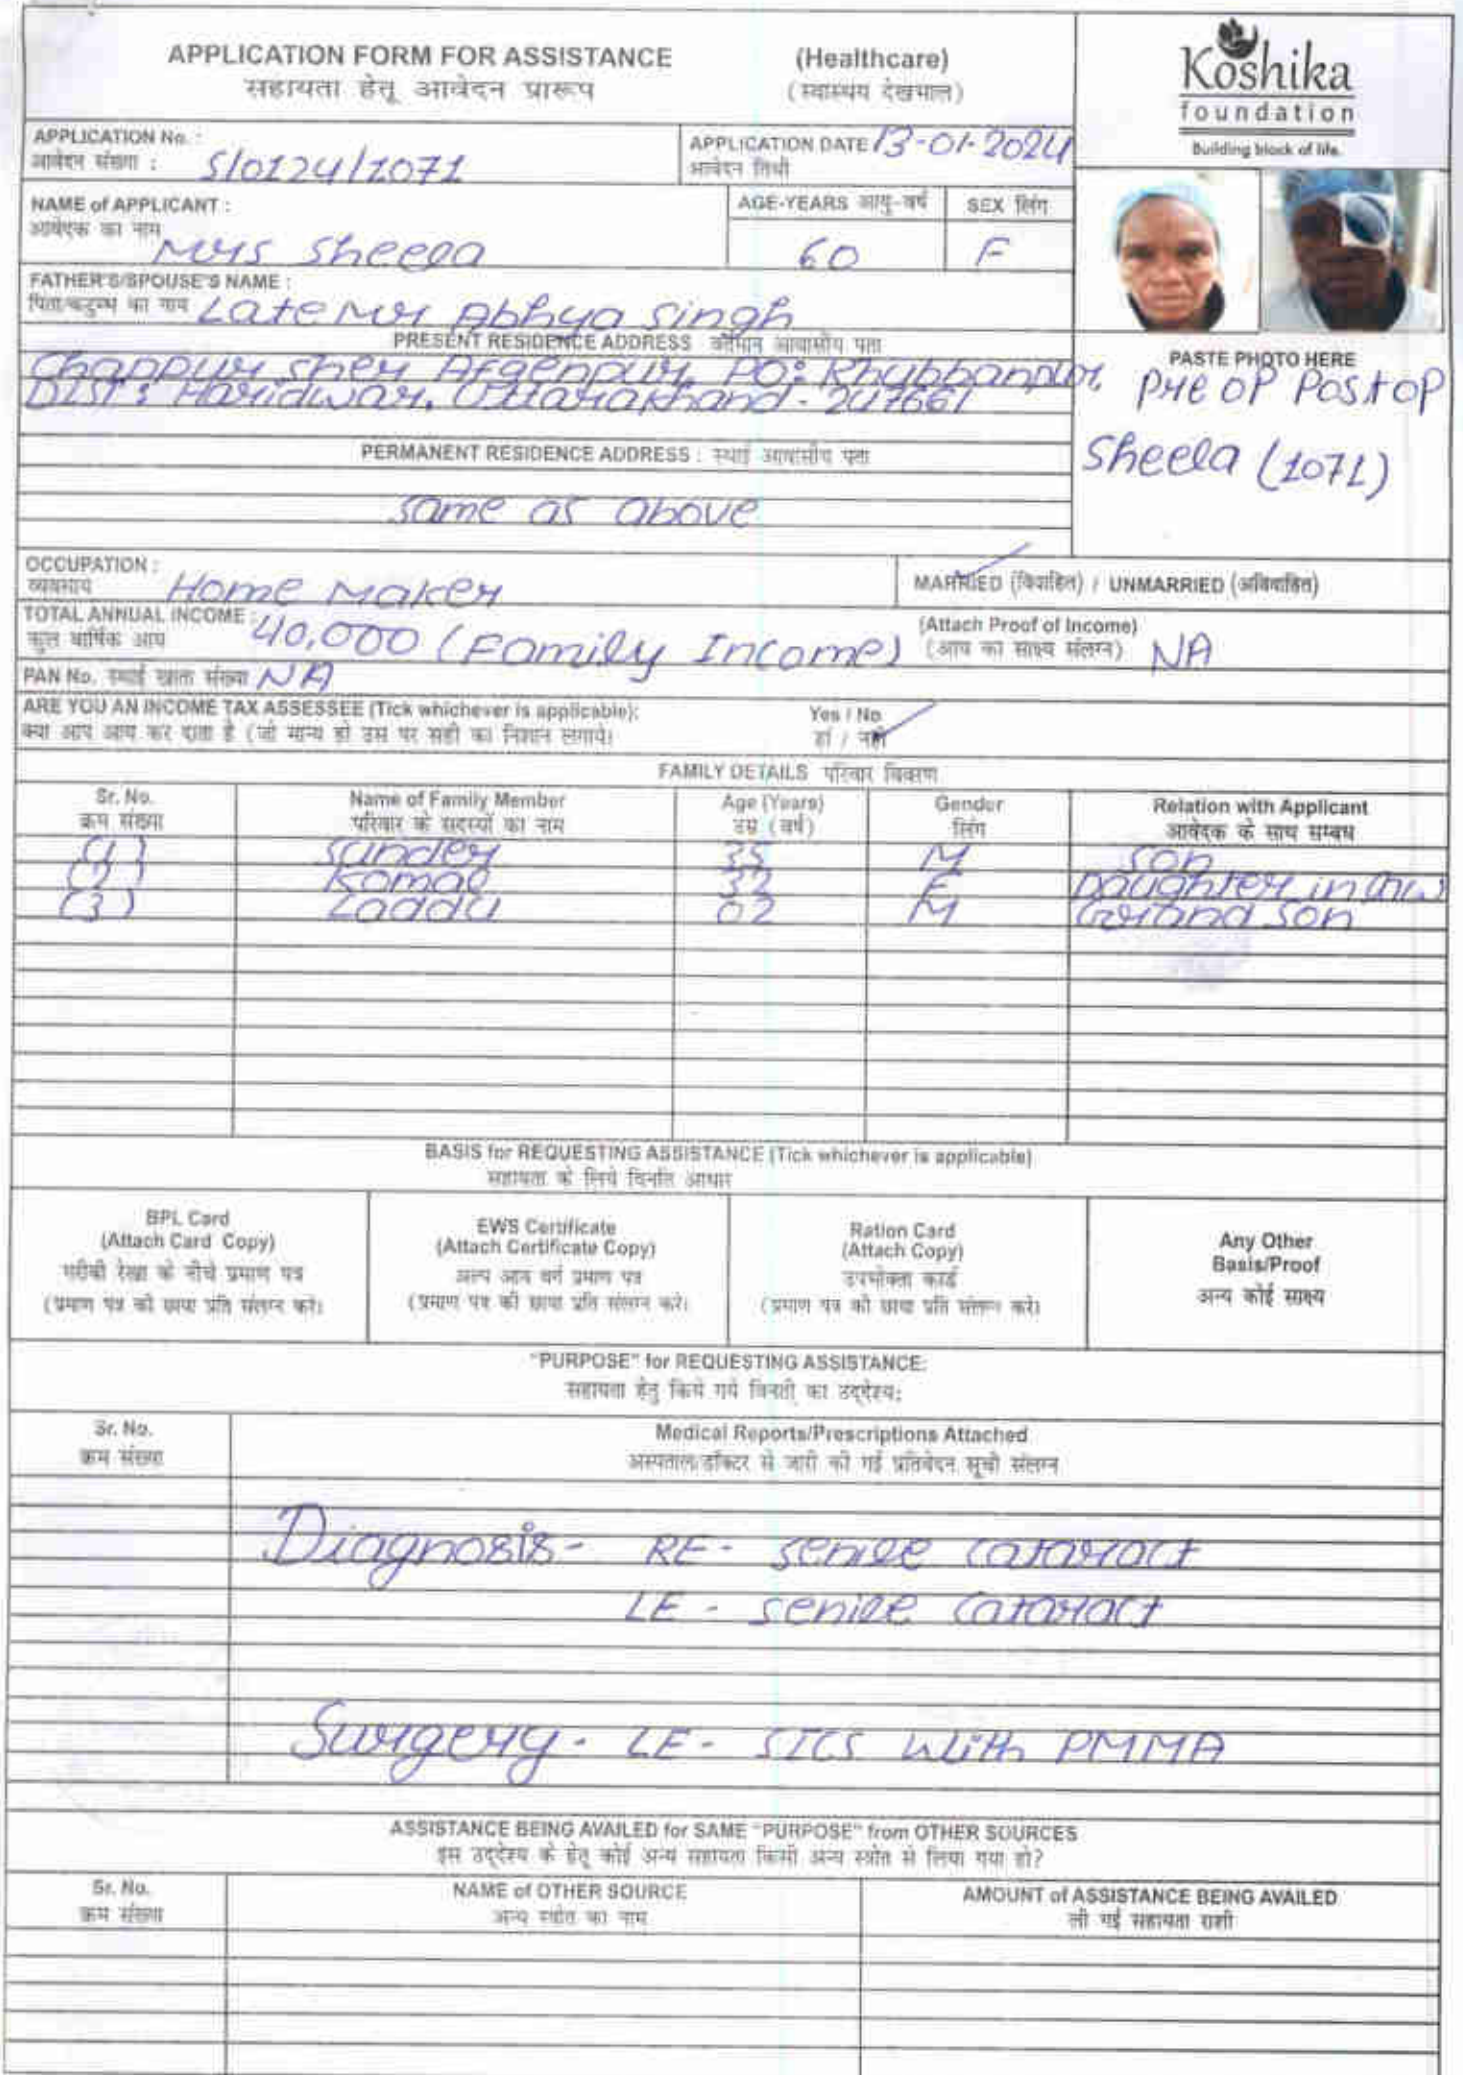 APPLICATION FORM FOR ASSISTANCE (Healthcare)
सहायता हेतू आवेदन प्रारूप (स्वास्थ्य देखभाल)
Koshika
foundation
Building block of life.
APPLICATION No. : S/0124/1071
आवेदन संख्या :
APPLICATION DATE 13-01-2024
आवेदन तिथी
NAME of APPLICANT : Mrs Sheela
आवेदक का नाम
AGE-YEARS आयु-वर्ष 60
SEX लिंग F
FATHER'S/SPOUSE'S NAME :
Late Mr Abhya Singh
PRESENT RESIDENCE ADDRESS वर्तमान आवासीय पता
Sher Afgenpur, PO: Khubbanpur,
Dist: Haridwar, Uttarakhand - 247661
PASTE PHOTO HERE
Pre OP Post OP
Sheela (1071)
PERMANENT RESIDENCE ADDRESS : स्थाई आवासीय पता
same as above
OCCUPATION : Home Maker
व्यवसाय
MARRIED (विवाहित) / UNMARRIED (अविवाहित)
TOTAL ANNUAL INCOME : 40,000 (Family Income)
कुल वार्षिक आय
(Attach Proof of Income) NA
(आय का साक्ष्य संलग्न)
PAN No. स्थाई खाता संख्या NA
ARE YOU AN INCOME TAX ASSESSEE (Tick whichever is applicable): Yes / No
क्या आप आय कर दाता है (जो मान्य हो उस पर सही का निशान लगाये। हां / नहीं
FAMILY DETAILS परिवार विवरण
Sr. No. Name of Family Member Age (Years) Gender Relation with Applicant
क्रम संख्या परिवार के सदस्यों का नाम उम्र (वर्ष) लिंग आवेदक के साथ सम्बंध
(1) Sunder 35 M Son
(2) Komal 32 F Daughter in law
(3) Laddu 02 M Grand Son
BASIS for REQUESTING ASSISTANCE (Tick whichever is applicable)
सहायता के लिये विनति आधार
BPL Card
(Attach Card Copy)
गरीबी रेखा के नीचे प्रमाण पत्र
(प्रमाण पत्र की छाया प्रति संलग्न करे।
EWS Certificate
(Attach Certificate Copy)
अल्प आय वर्ग प्रमाण पत्र
(प्रमाण पत्र की छाया प्रति संलग्न करे।
Ration Card
(Attach Copy)
उपभोक्ता कार्ड
(प्रमाण पत्र की छाया प्रति संलग्न करे।
Any Other
Basis/Proof
अन्य कोई साक्ष्य
"PURPOSE" for REQUESTING ASSISTANCE:
सहायता हेतु किये गये विनती का उद्देश्य:
Sr. No. Medical Reports/Prescriptions Attached
क्रम संख्या अस्पताल/डॉक्टर से जारी की गई प्रतिवेदन सूची संलग्न
Diagnosis - RE - senile cataract
LE - senile cataract
Surgery - LE - SICS with PMMA
ASSISTANCE BEING AVAILED for SAME "PURPOSE" from OTHER SOURCES
इस उद्देश्य के हेतू कोई अन्य सहायता किसी अन्य स्त्रोत से लिया गया हो?
Sr. No. NAME of OTHER SOURCE AMOUNT of ASSISTANCE BEING AVAILED
क्रम संख्या अन्य स्त्रोत का नाम ली गई सहायता राशी